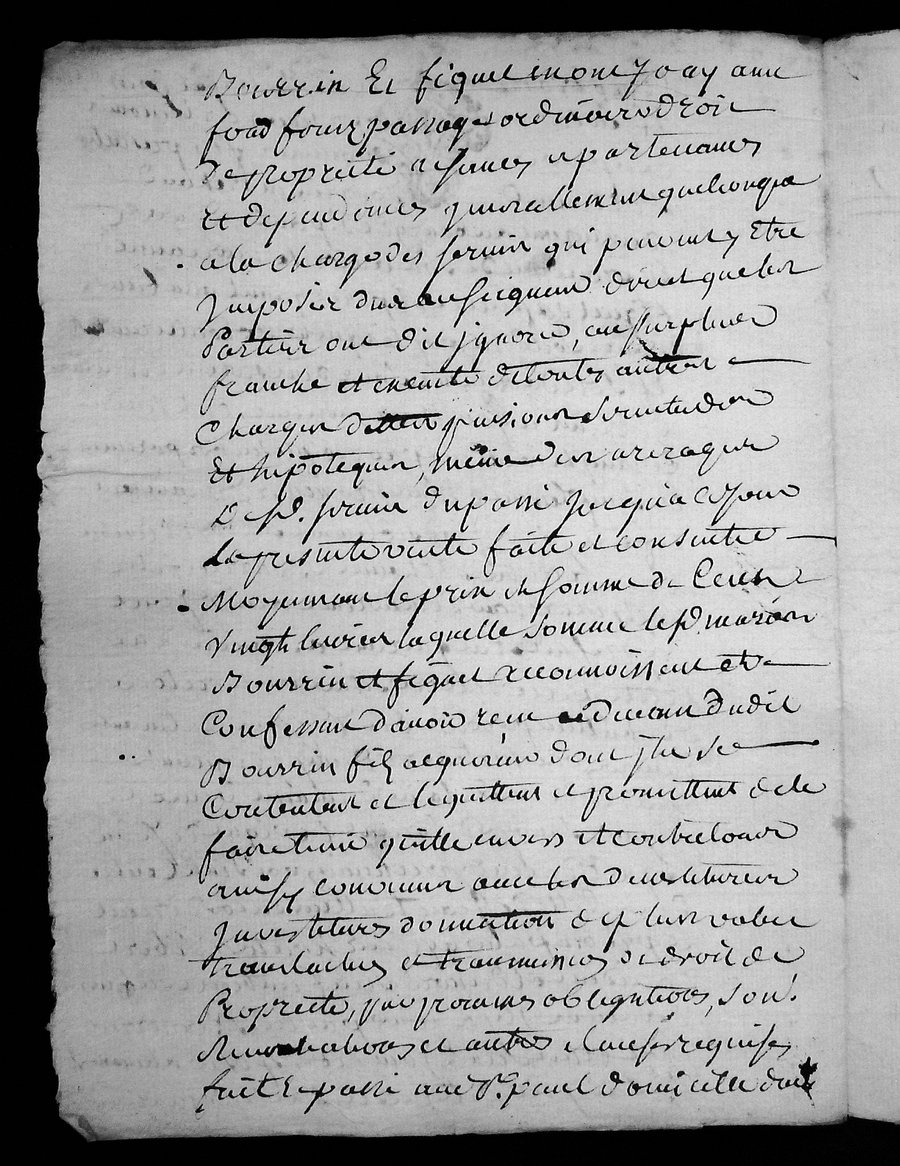 Bourrin Et fiquet en ont Joay avec
fond fourz passage ordinaire droit
de propriete aisances apartenances
Et dependences generallement quelconque
a la charge des servis qui peuvent y Etre
Jmposés dus au seigneur direct que les
Parties ont dit jgnorer, au surplus
franche et exempte de toutes autres
charges dettes pensions servitudes
Et hipoteques, même des arerages
de sd. servis du passé jusqu'a ce jour
La presente vente faite et consentie
Moyennant le prix et somme de Cent
vingt livres laquelle somme les sd. marion
Bourrin et fiquet reconnoissent et
Confessent d'avoir reçu cidevant dudit
Bourrin fils acquereur dont jls se
Contentent et le quittent et promettent de le
faire tenir quitte envers et contre tous
ainsy convenu avec les devestitures
Jnvestitures donnation de plus value
translations et transmission de droit de
Propriete, par promesses obligations, soum.
Renonciations et autres clauses requises
fait Et passé audt. St. paul domicille du